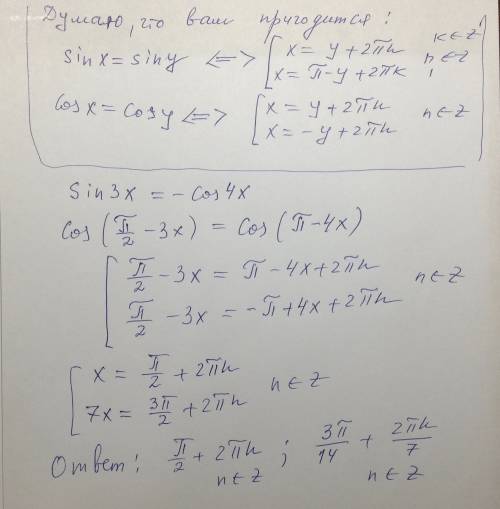 Думаю, что вам пригодится:
sinx = siny <=> [ x = y + 2πn k∈Z
x = π-y + 2πk, n∈Z
cosx = cosy <=> [ x = y + 2πn
x = -y + 2πn n∈Z
sin3x = -cos4x
cos(π/2 - 3x) = cos(π-4x)
[ π/2 - 3x = π - 4x + 2πn
π/2 - 3x = -π + 4x + 2πn n∈Z
[ x = π/2 + 2πn
7x = 3π/2 + 2πn n∈Z
Ответ: π/2 + 2πn ; 3π/14 + 2πn/7
n∈Z n∈Z